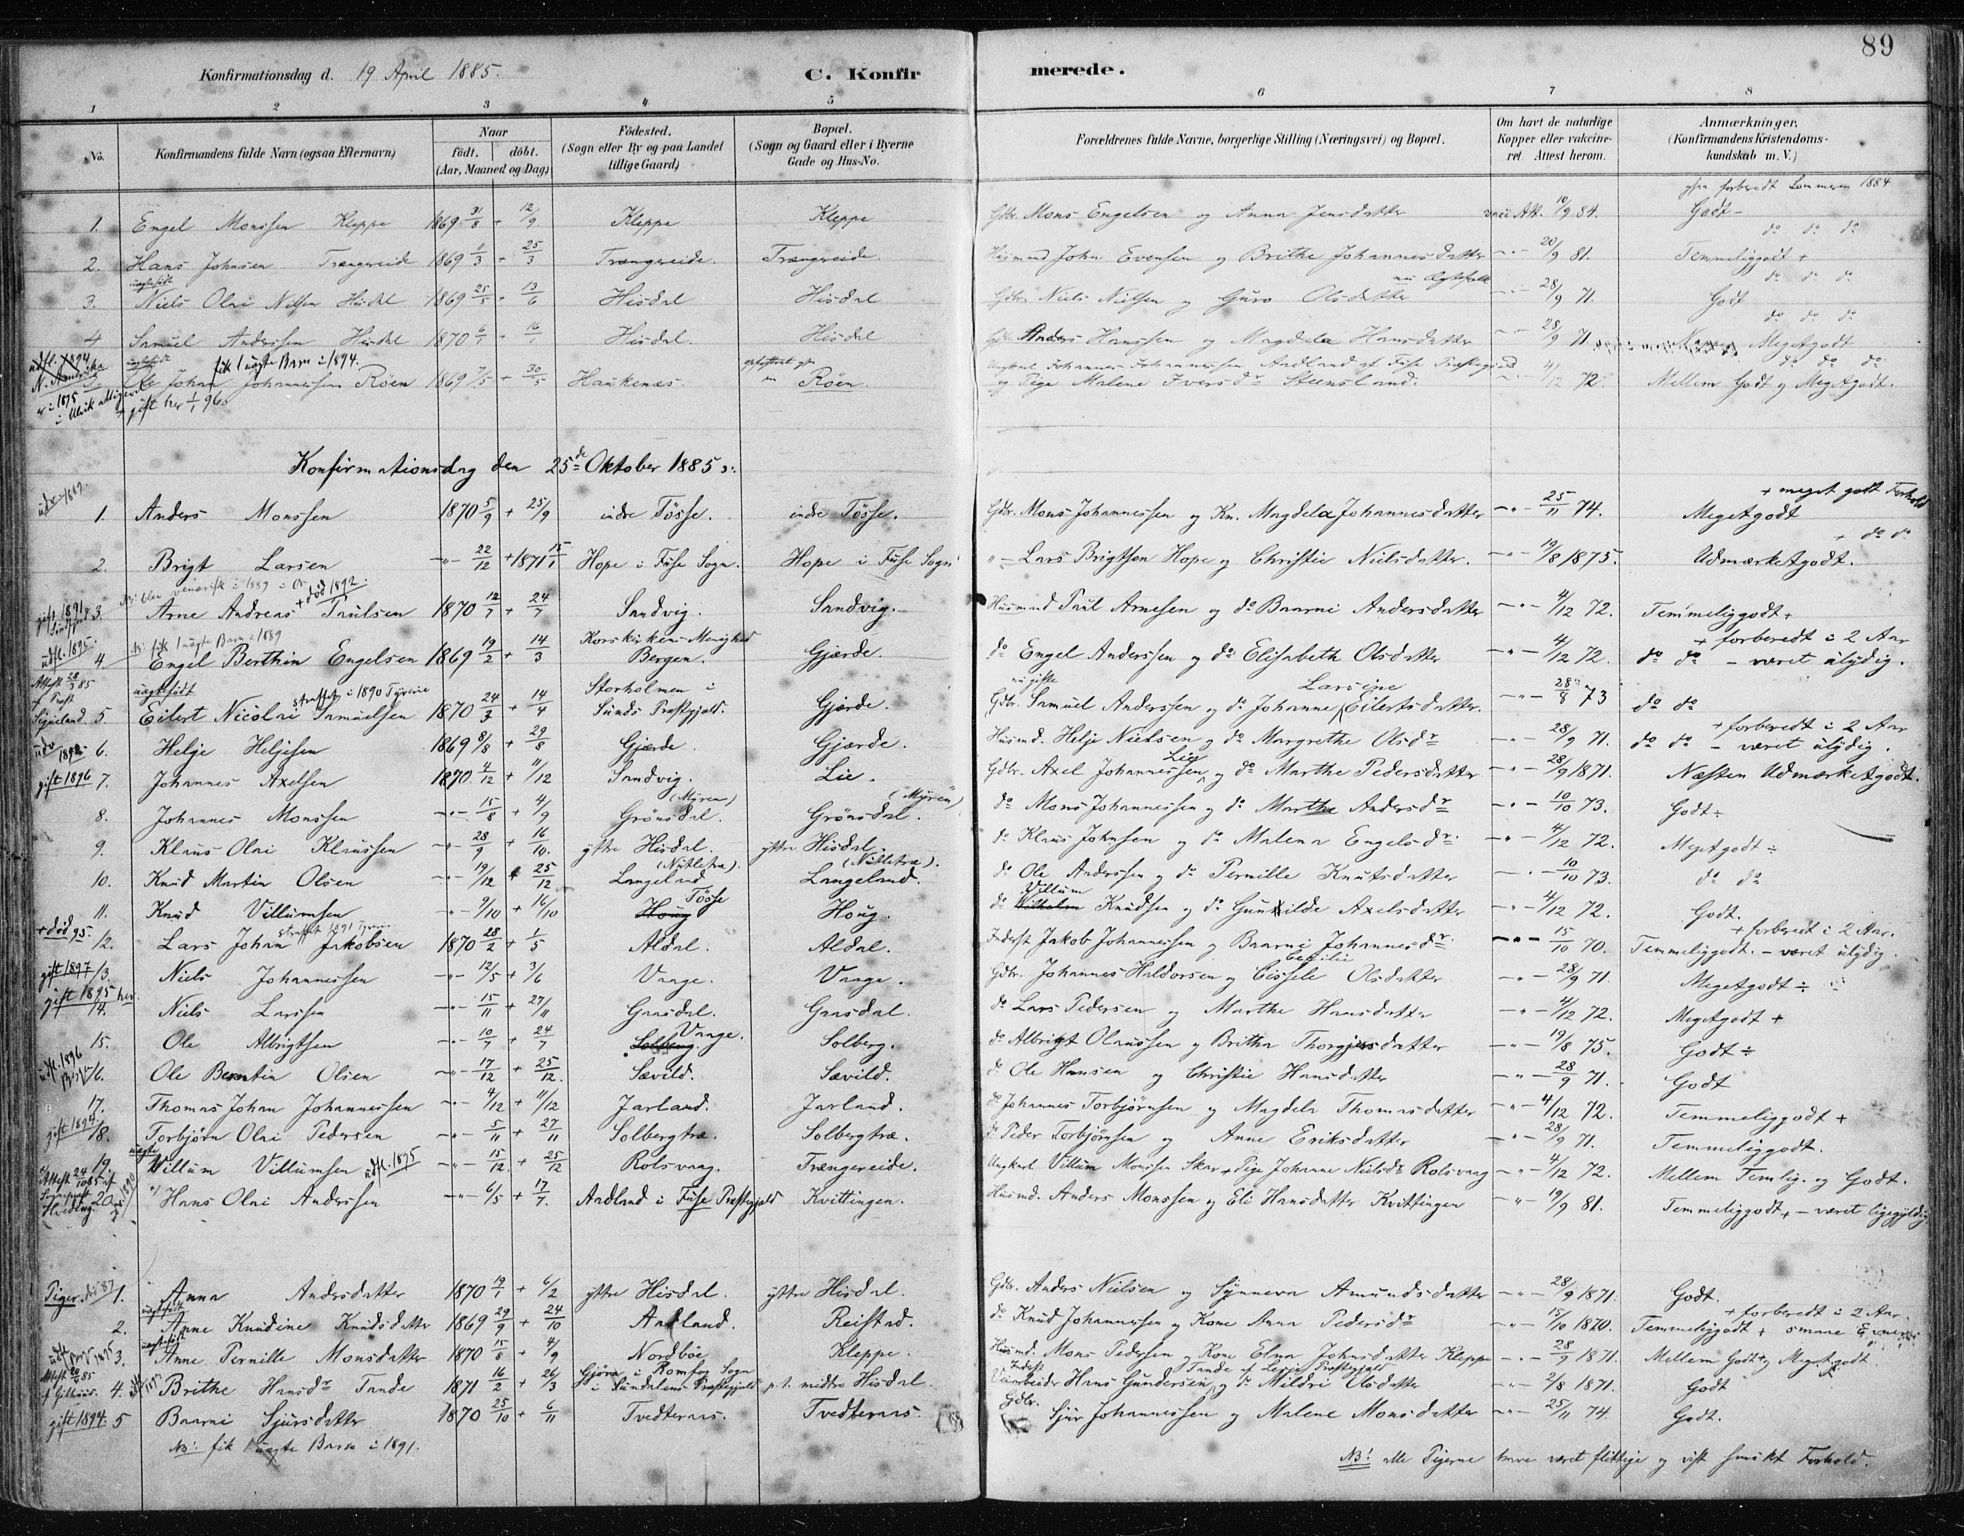 89
Konfirmationsdag d. 19 April 1885.
C. Konfirmerede.
1 2 3 4 5 6 7 8
No.
Konfirmandens fulde Navn (ogsaa Efternavn)
Naar
födt. döbt.
(Aar, Maaned og Dag)
Födested.
(Sogn eller By og paa Landet
tillige Gaard)
Bopæl.
(Sogn og Gaard eller i Byerne
Gade og Hus-No.
Forældrenes fulde Navne, borgerlige Stilling (Næringsvei) og Bopæl.
Om havt de naturlige
Kopper eller vakcine-
ret. Attest herom.
Anmærkninger.
(Konfirmandens Kristendoms-
kundskab m. V.)
forberedt Sommeren 1884
1. Engel Monssen Kleppe 1869 31/8 + 12/9 Kleppe Kleppe Gdbr. Mons Engelsen og Anna Jensdatter Att. 10/9 84. Godt
do do do
2. Hans Johnsen Trængereide 1869 + 25/3 Trængereide. Trængereide. Husmnd John Evensen og Brithe Johannesdatter 20/9 81. Temmeliggodt +
uægtefødt nu Ægtefolk do do do
3. Niels Olai Nilsen Hisdal 1869 25/5 + 13/6 Hisdal Hisdal Gdbr. Niels Nielsen og Guro Olsdatter 28/9 71. Godt
do do do
4 Samuel Anderssen Hisdal 1870 6/1 + 16/1 Hisdal. Hisdal Gdbr. Anders Hanssen og Magdela Hansdatter 28/9 71 Megetgodt
udfl. 1894 N. Amerika fik 1 uægte Barn i 1894. do do do
Ole Johan Johannessen Røen 1869 7/5 + 30/5 Haukenæs. Røen. Ungkarl Johannes Johannessen Aadland af Fuse Præstegjeld
og Pige Malene Iversdr Steensland. 4/12 72. Mellem Godt og Megetgodt.
gift her 1/1 96.
Konfirmationsdag den 25de Oktober 1885
+ meget godt Forhold
1. Anders Monssen 1870 5/9 + 25/9 indre Tösse. indre Tösse. Gdbr. Mons Johannessen og Kn. Magdela Johannesdatter 25/11 74. Megetgodt
+ do do
2. Brigt Larsen 22/12 + 1871 15/1 Hope i Fuse Sogn. Hope i Fuse Sogn Lars Brigtsen Hope og Christie Nielsdatter. 19/8 1875. Udmærketgodt.
+ död 1892.
gift 1891 3. Arne Andreas Trulsen 1870 12/7 + 24/7 Sandvig. Sandvig. Husmnd Trul Arnesen og do Baarni Andersdatter 4/12 72. Temmeliggodt +
udfl. 1895. NB: fik 1 uægte Barn i 1889 Korskirkens Menighed + forberedt i 2 Aar
4. Engel Berthin Engelsen 1869 19/2 + 14/3 Bergen. Gjærde. do Engel Anderssen og do Elisabeth Olsdatter 4/12 72. do do – været ulydig.
uægtefødt straffet i 1890 Tyverie Storholmen i nu gifte Larsine
5 Eilert Nicolai Samuelsen 1870 24/3 + 14/4 Sunds Præstgjeld. Gjærde. Gdbr. Samuel Anderssen og do Johanne Eilertsdatter. 28/8 73 do do
+ forberedt i 2 Aar
6. Helje Heljesen 1869 8/8 + 29/8 Gjærde. Gjærde. Husmd. Helje Nielsen og do Margrethe Olsdr 28/9 71. do do – været ulydig.
gift 1896 7. Johannes Axelsen 1870 4/12 + 11/12 Sandvig. Lie. Gdbr. Axel Johannessen Lie og do Marthe Pedersdatter 28/9 1871. Næsten Udmærketgodt.
(Myren) ("Myren")
8. Johannes Monssen 15/8 + 4/9 Grönsdal. Grönsdal. do Mons Johannessen og do Marthe Andersdr 10/10 73. Godt÷
9. Klaus Olai Klaussen 28/9 + 16/10. yttre Hisdal. yttre Hisdal. do Klaus Johnsen og do Malena Engelsdr. 4/12 72. Megetgodt ÷
(Nutletræ). (Nutletræ).
10. Knud Martin Olsen 19/12 + 25/12 Langeland Langeland. do Ole Anderssen og do Pernille Knutsdatter 10/10 73. do do
11. Knud Villumsen 9/10 + 16/10 Houg Tösse Houg. do Vilhelm Villum Knudsen og do Gunhilde Axelsdatter 4/12 72. Godt.
+ död 95. + forberedt i 2 Aar.
12. Lars Johan Jakobsen 1870 28/2 + 1/5 Aldal. Aldal. Inderst Jakob Johannessen og Baarni Johannesdr. 15/10 70. Temmeliggodt. – været ulydig.
gift 1897 13. Niels Johannessen 12/5 + 3/6 Vaage. Vaage. Gdbr. Johannes Haldorsen og Cissele Cecilie Olsdatter 28/9 71 Megetgodt ÷
gift 1895 her 14. Niels Larssen 15/11 + 27/11 Gaasdal. Gaasdal. do Lars Pedersen og Marthe Hansdatter 4/12 72. Megetgodt +
15. Ole Albrigtsen 10/7 + 24/7 Solberg. Vaage. Solberg. do Albrigt Olaussen og Britha Thorgjersdatter 19/8 75. Godt ÷
udfl. 1896 16. Ole Berntin Olsen 17/12 + 25/12. Sævild. Sævild. do Ole Hansen og Christie Hansdatter 28/9 71. Godt
17. Thomas Johan Johannessen 4/12 + 11/12 Jarland. Jarland. do Johannes Torbjørnsen og Magdela Thomasdatter 4/12 72. Temmeliggodt +
gift 1894 18. Torbjørn Olai Pedersen 5/11 + 27/11 Solbergtræ. Solbergtræ. do Peder Torbjørnsen og Anne Eriksdatter 28/9 71. Temmeliggodt.
uægte 19. Villum Villumsen udfl. 1895 15/12. + 25/12 Rolsvaag. Trængereide. Ungkarl Villum Monssen Skar + Pige Johanne Nielsdr Rolsvaag 4/12 72. Mellem Temlig. og Godt.
20 Hans Olai Anderssen 6/5 + 17/7. Aadland i Fuse Præstegjeld Kvittingen. Husmd. Anders Monssen og Eli Hansdatter Kvittingen 19/9 81. Temmeliggodt, – været ligegyldig
Piger. 1. Anna Andersdatter 1870 19/1 + 6/2 yttre Hisdal. yttre Hisdal. Gdbr. Anders Nielsen og Synneva Amundsdatter 28/9 1871. Godt.
uægtefødt + forberedt i 2 Aar.
2. Anne Knudine Knudsdatter 1869 29/9 + 24/10 Aadland. Reistad. do Knud Johannessen og Kone Anna Pedersdr 15/10 1870. Temmeliggodt + smaae Evner
uægtefødt
3. Anne Pernille Monsdatter 1870 15/8 + 4/9 Nordböe Kleppe. Husmd. Mons Pedersen og Kone Elna Johnsdatter Kleppe 28/9 1871. Mellem Godt og Megetgodt
4. Brithe Hansdr Tande 1871 16/2 + 26/3 Gjöra i Romfo Sogn i Sundalens Præstegjeld p.t. midtre Hisdal. Inderst Hans Gundersen Tande af Præstegjeld og do Mildri Olsdatter 2/8 1871. Godt
gift 1894. 5 Baarni Sjursdatter 1870 25/10 + 6/11 Tvedternæs. Tvedternæs. Gdbr. Sjur Johannessen og Malene Monsdatter 25/11 74. Godt.
NB: fik 1 uægte Barn i 1891.
NB! alle Pigerne have været flittige og vist smukt Forhold.